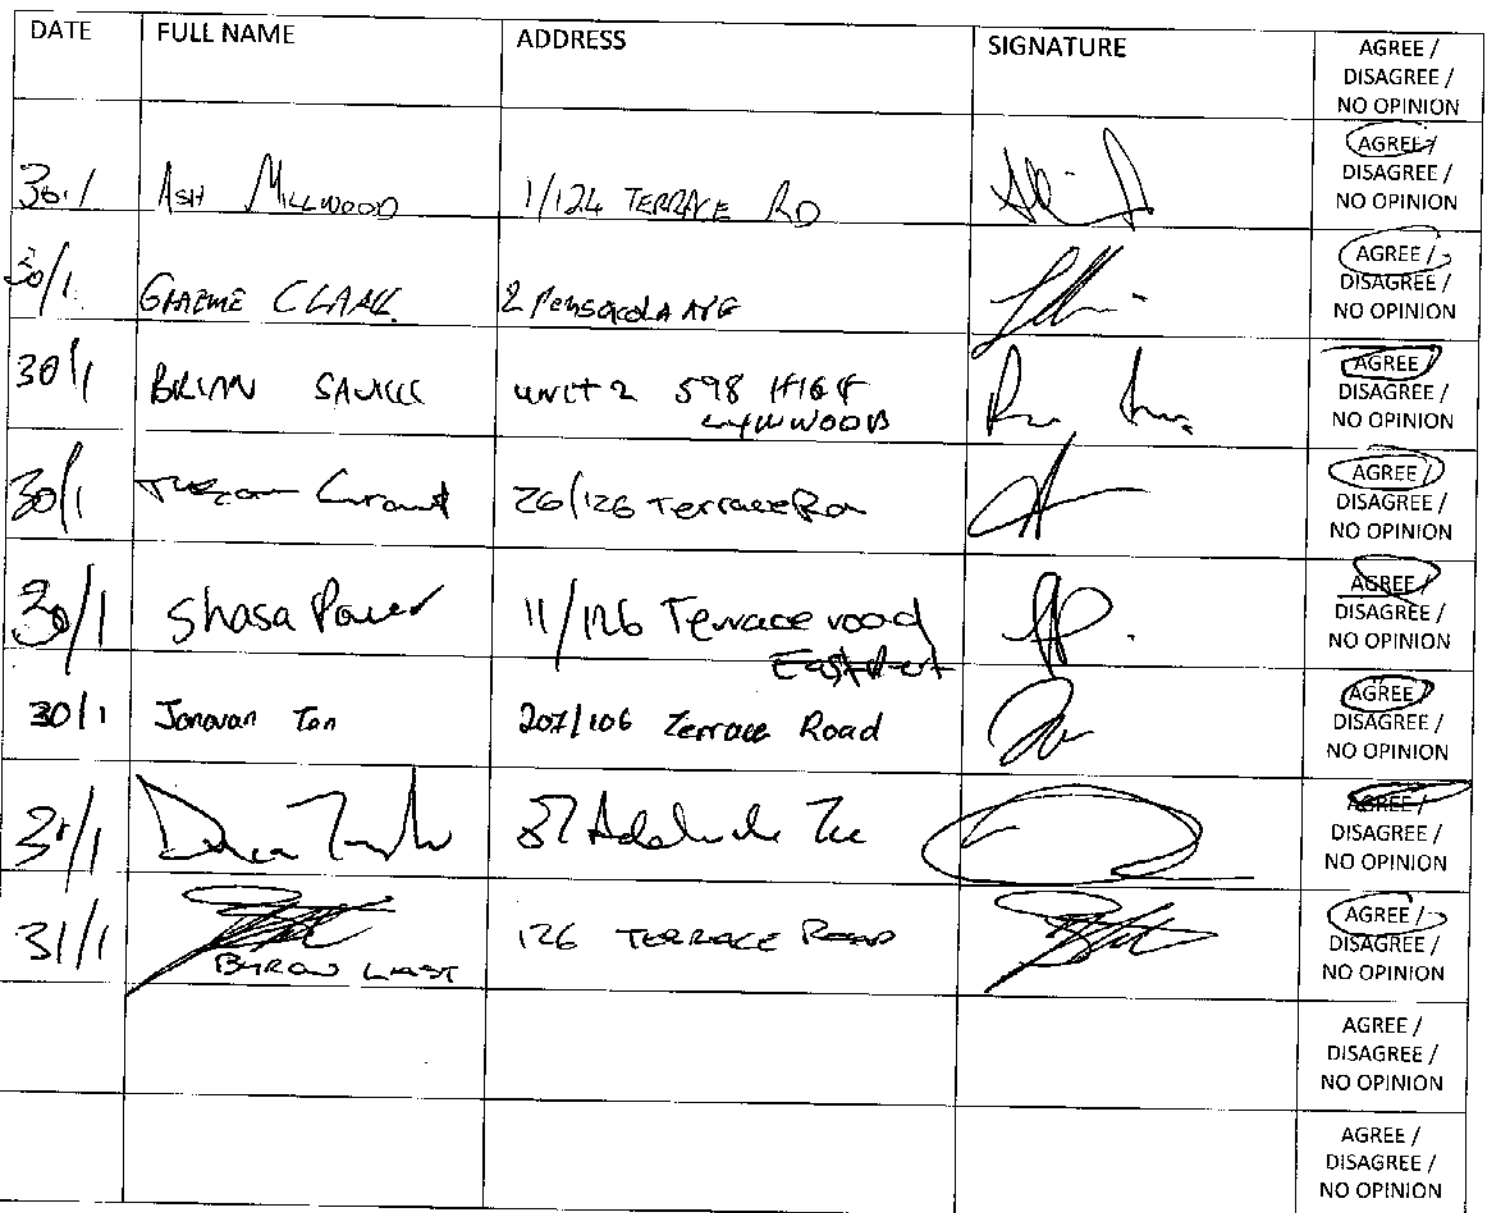 DATE FULL NAME ADDRESS SIGNATURE AGREE /
DISAGREE /
NO OPINION
30/1 ASH MILLWOOD 1/124 TERRACE RD AGREE /
DISAGREE /
NO OPINION
30/1 GRAEME CLARK 2 Pensacola AVE AGREE /
DISAGREE /
NO OPINION
30/1 BRIAN unit 2 598 HIGH AGREE /
LYNWOOD DISAGREE /
NO OPINION
30/1 Grant 26/126 Terrace AGREE /
DISAGREE /
NO OPINION
30/1 Shasa Power 11/126 Terrace road AGREE /
DISAGREE /
NO OPINION
30/1 Jonovan Tan 207/106 Terrace Road AGREE /
DISAGREE /
NO OPINION
37 Adelaide Tce AGREE /
DISAGREE /
NO OPINION
31/1 126 TERRACE ROAD AGREE /
BYRON LAST DISAGREE /
NO OPINION
AGREE /
DISAGREE /
NO OPINION
AGREE /
DISAGREE /
NO OPINION